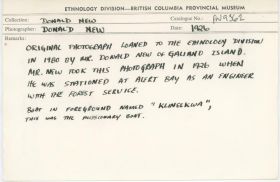 ETHNOLOGY DIVISION—BRITISH COLUMBIA PROVINCIAL MUSEUM
Collection: DONALD NEW Catalogue No.: PN9362
Photographer: DONALD NEW Date: 1926
Remarks:
ORIGINAL PHOTOGRAPH LOANED TO THE ETHNOLOGY DIVISION
IN 1980 BY MR. DONALD NEW OF GALIANO ISLAND.
MR. NEW TOOK THIS PHOTOGRAPH IN 1926 WHEN
HE WAS STATIONED AT ALERT BAY AS AN ENGINEER
WITH THE FOREST SERVICE.
BOAT IN FOREGROUND NAMED "KLINEEKWA";
THIS WAS THE MISSIONARY BOAT.